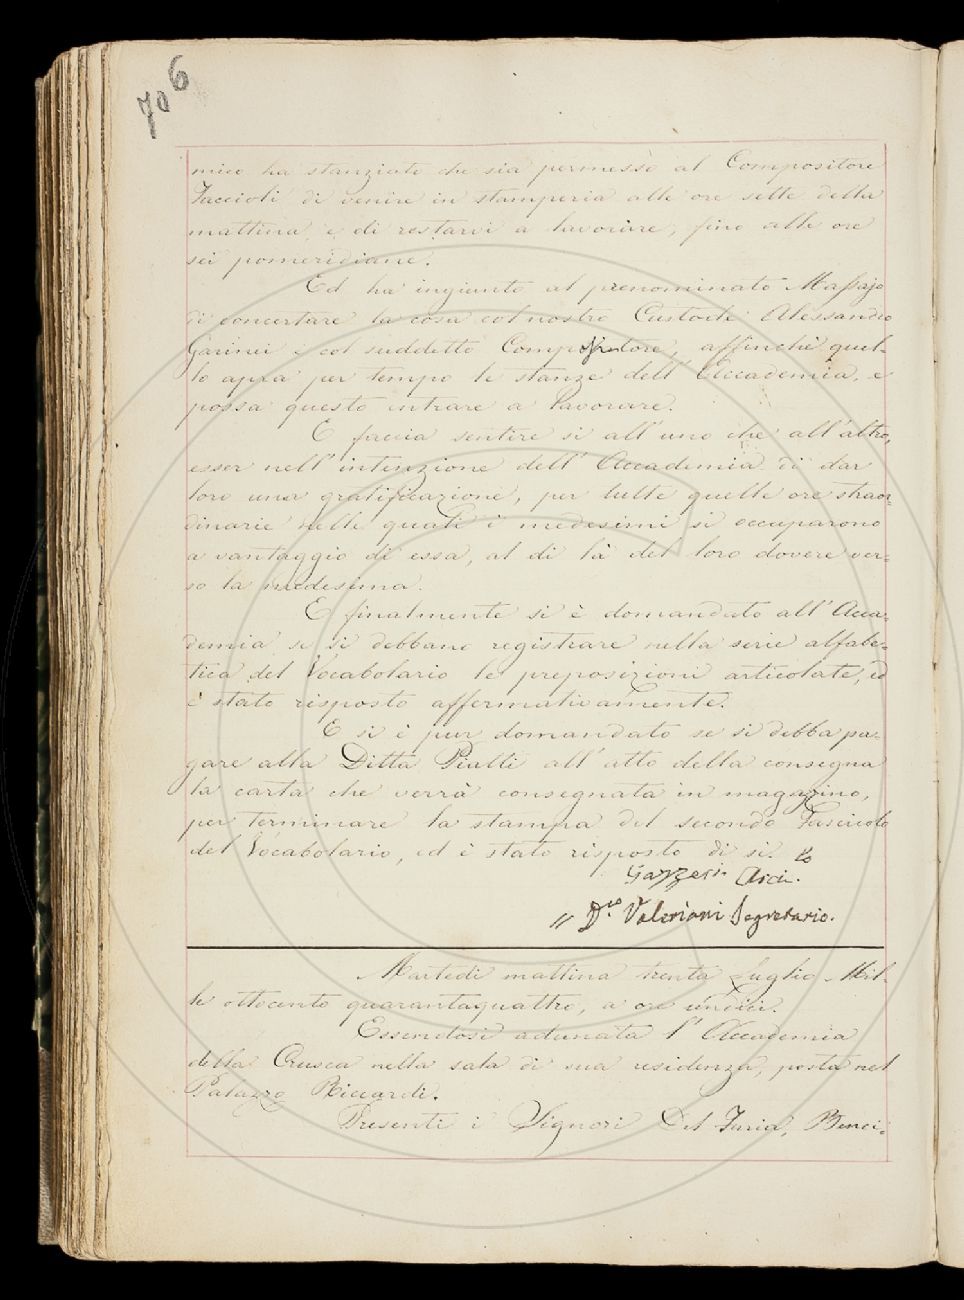 706
mico ha stanziato che sia permesso al Compositore
Faccioli di venire in stamperia alle ore sette della
mattina e di restarvi a lavorare, fino alle ore
sei pomeridiane.
Ed ha ingiunto al prenominato Massajo
di concertare la cosa col nostro Custode Alessandro
Garinei e col suddetto Compositore, affinchè quel-
lo apra per tempo le stanze dell'Accademia, e
possa questo entrare a lavorare.
E faccia sentire sì all'uno che all'altro,
esser nell'intenzione dell'Accademia di dar
loro una gratificazione, per tutte quelle ore straor-
dinarie nelle quali i medesimi si occuparono
a vantaggio di essa, al di là del loro dovere ver-
so la medesima.
E finalmente si è domandato all'Acca-
demia se si debbano registrare nella serie alfabe-
tica del Vocabolario le preposizioni articolate, ed
è stato risposto affermativamente.
E si è pur domandato se si debba pa-
gare alla Ditta Piatti all'atto della consegna
la carta che verrà consegnata in magazino,
per terminare la stampa del secondo Fascicolo
del Vocabolario, ed è stato risposto di sì.
Gazzeri Arci.
D.co Valeriani Segretario.
Martedì mattina trenta Luglio Mil-
le ottocento quarantaquattro, a ore undici.
Essendosi adunata l'Accademia
della Crusca nella sala di sua residenza, posta nel
Palazzo Riccardi.
Presenti i Signori Del Furia, Benci-